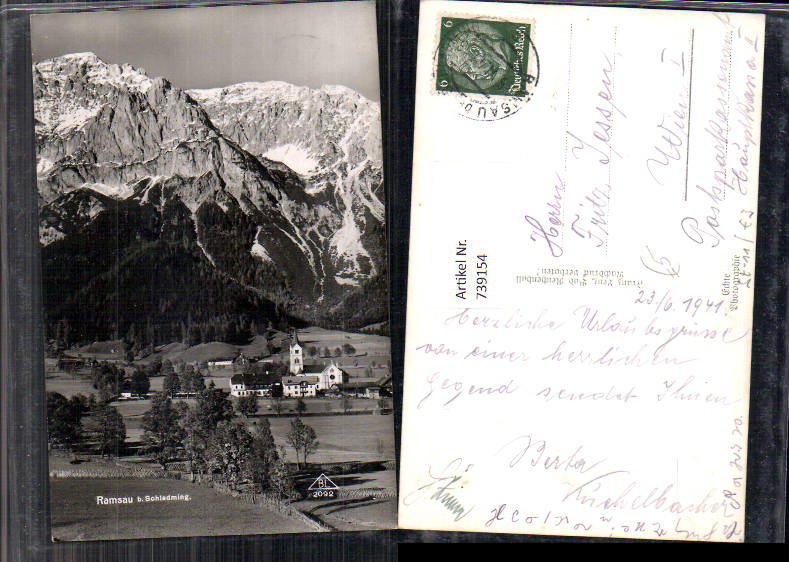 Ramsau b. Schladming.
BL
2092
6 6
Deutsches Reich
Artikel Nr.
739154
Herrn
Fritz Jessen
Wien I
Postsparkassenamt
Franz Lenz, Bad Reichenhall
Nachdruck verboten!
Echte
Photographie
23/6. 1941.
Herzliche Urlaubsgrüsse
von einer herrlichen
Gegend sendet Ihnen
Berta
Kuchelbacher